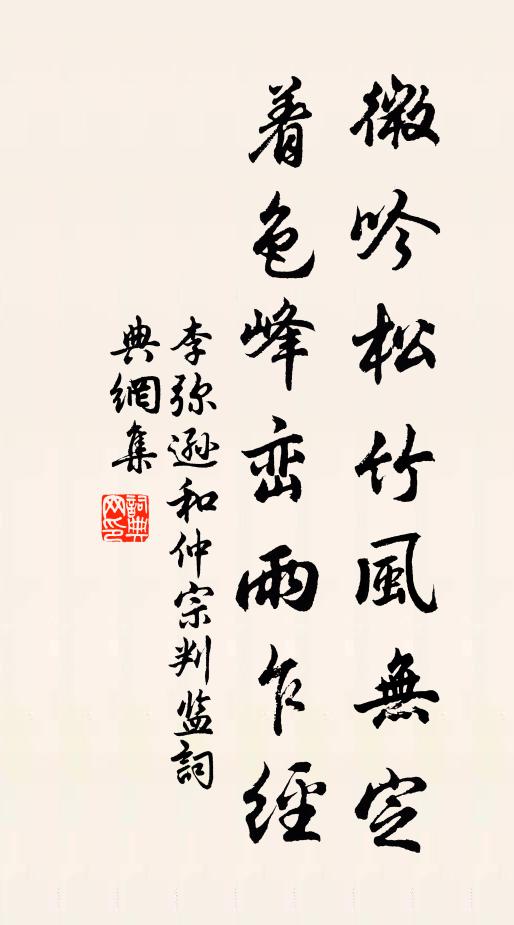 微吟松竹風無定
着色峰峦雨乍經
李弥遜和仲宗判监詞
典網集
詞典网印